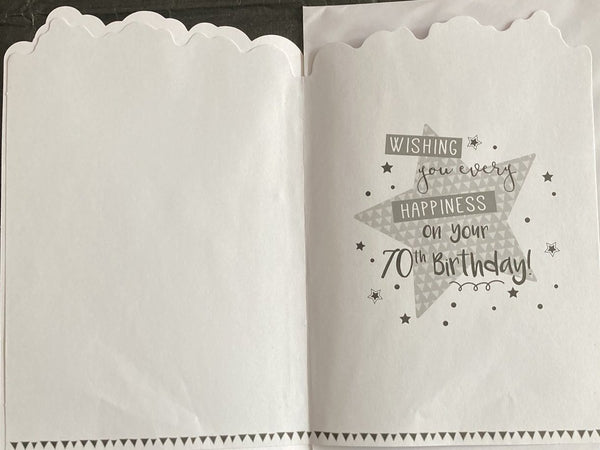 WISHING
you every
HAPPINESS
on your
70th Birthday!